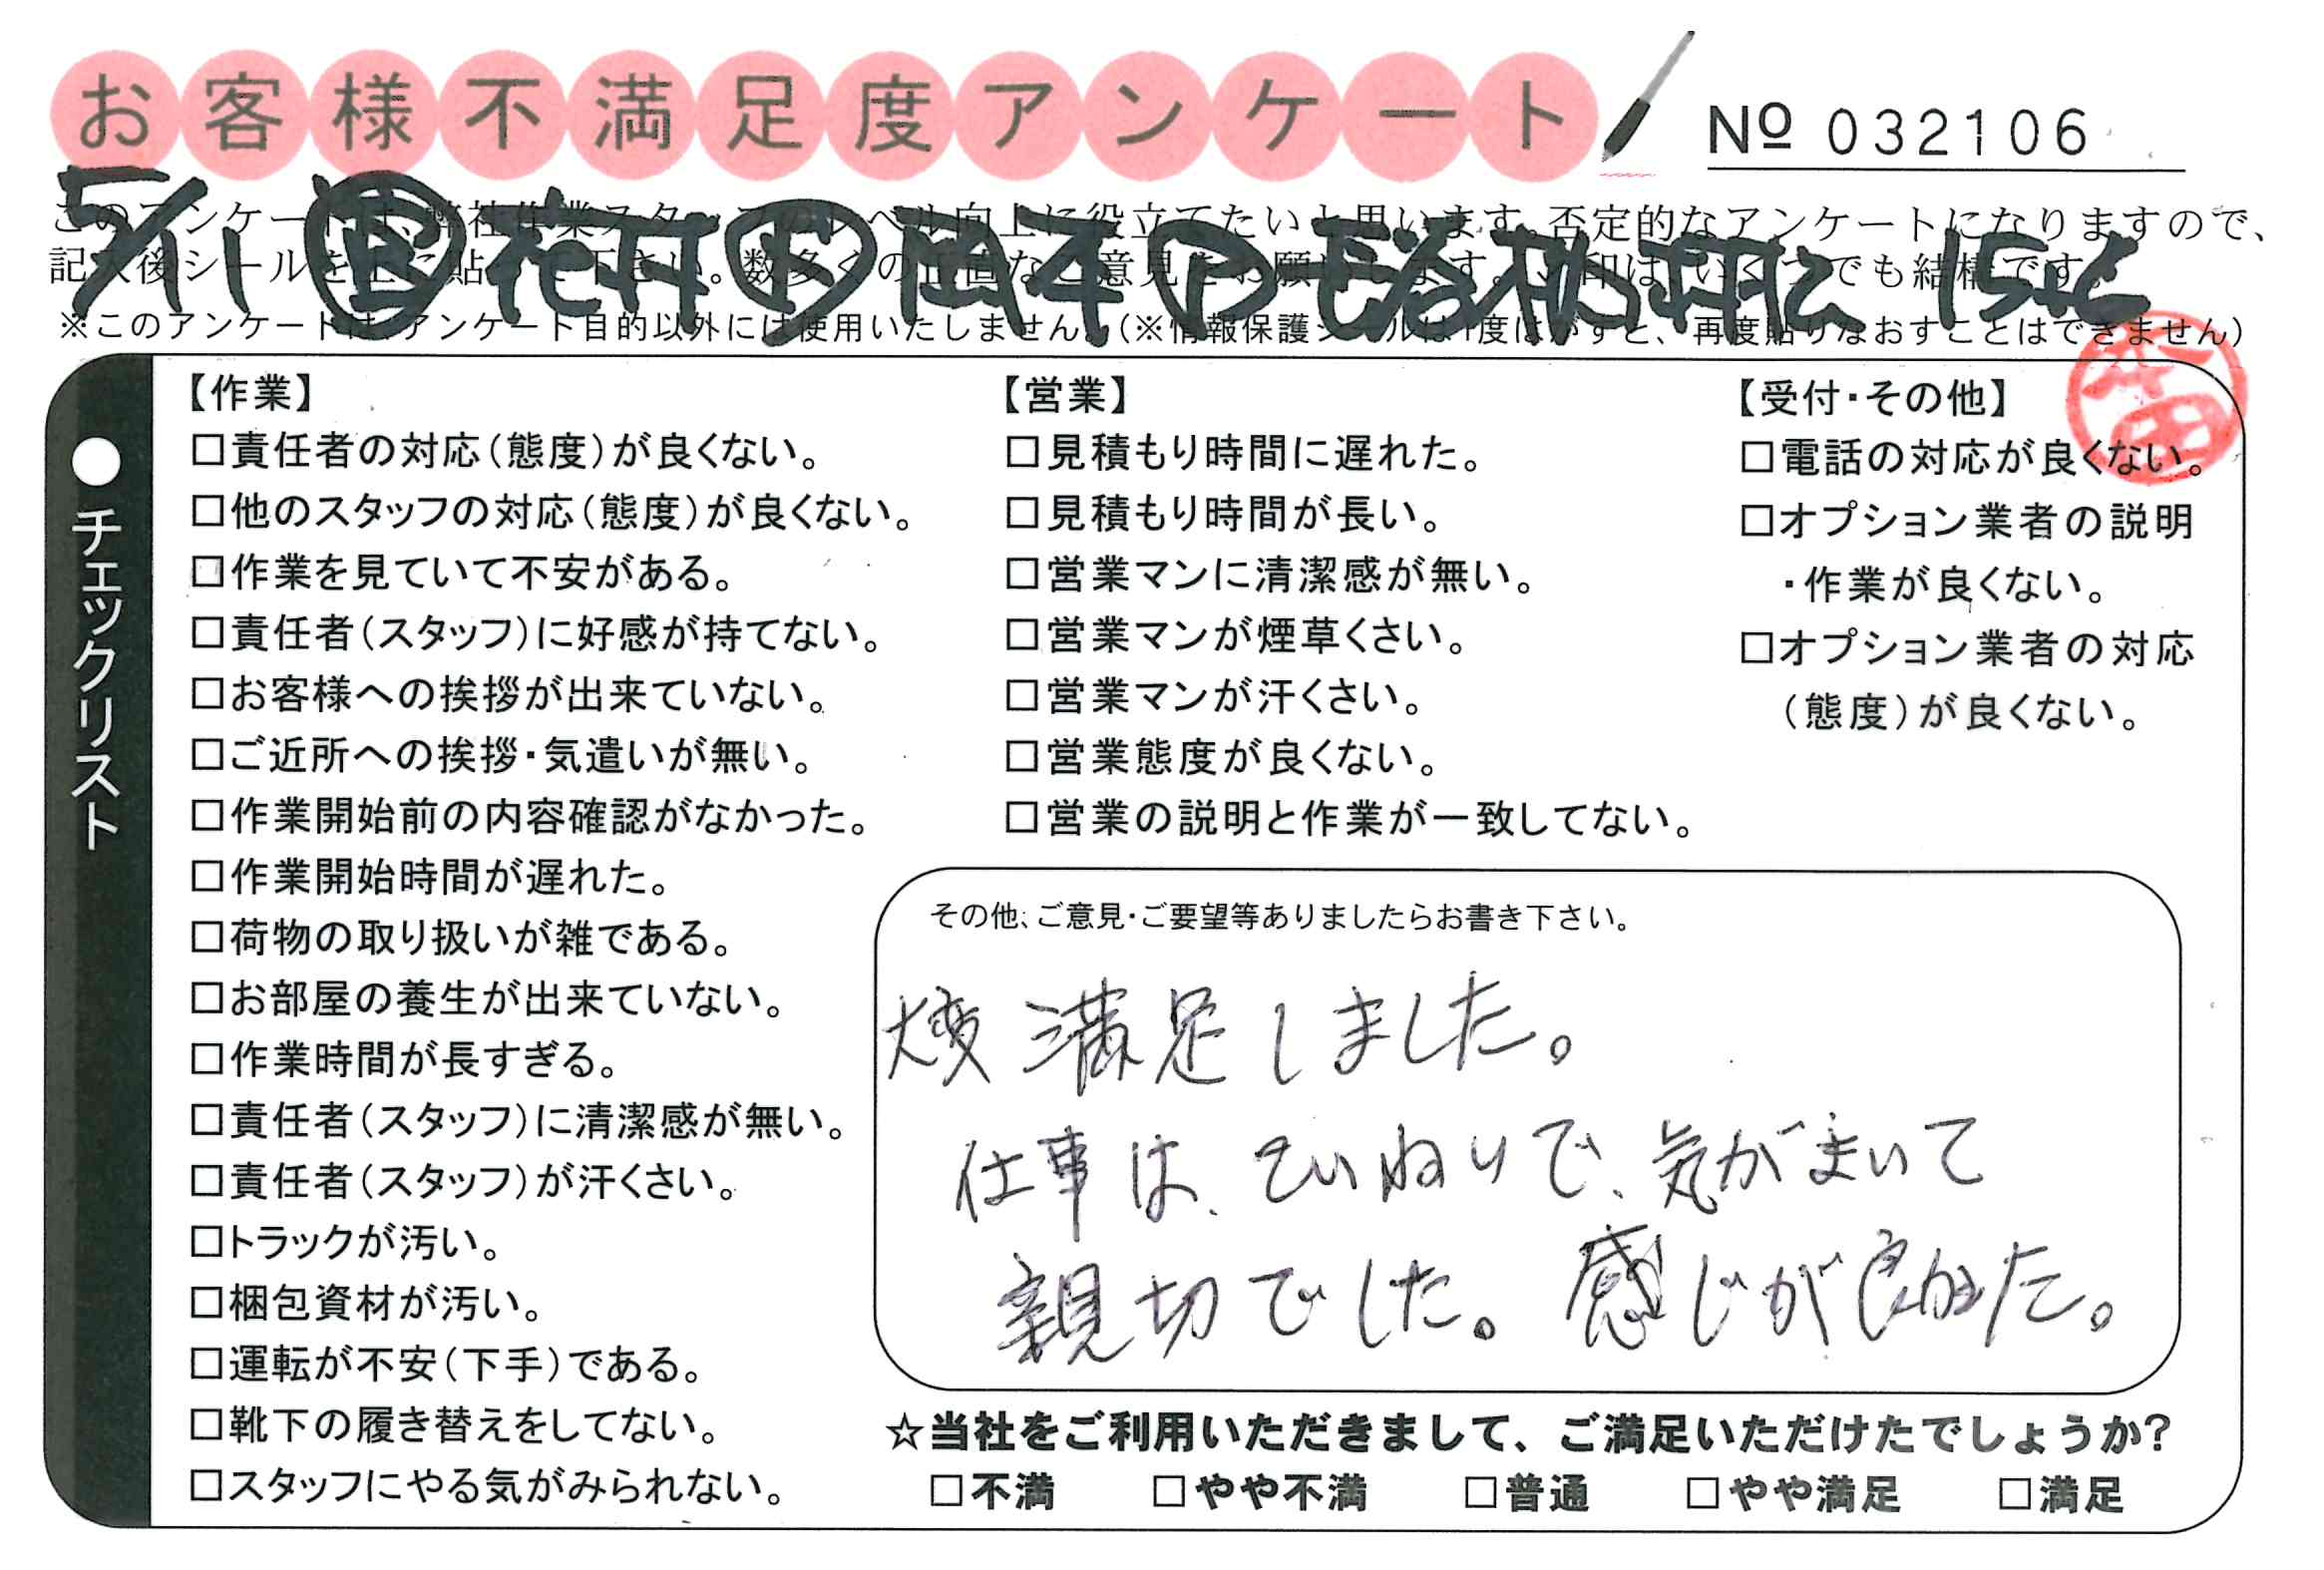 お客様不満足度アンケート
№ 032106
このアンケートは、弊社作業スタッフのレベル向上に役立てたいと思います。否定的なアンケートになりますので、
記入後シールを上に貼って下さい。数多くの正直なご意見をお願いします。レ印は、いくつでも結構です。
※このアンケートは、アンケート目的以外には使用いたしません。(※情報保護シールは1度はがすと、再度貼りなおすことはできません)
5/11
●チェックリスト
【作業】
□責任者の対応(態度)が良くない。
□他のスタッフの対応(態度)が良くない。
□作業を見ていて不安がある。
□責任者(スタッフ)に好感が持てない。
□お客様への挨拶が出来ていない。
□ご近所への挨拶・気遣いが無い。
□作業開始前の内容確認がなかった。
□作業開始時間が遅れた。
□荷物の取り扱いが雑である。
□お部屋の養生が出来ていない。
□作業時間が長すぎる。
□責任者(スタッフ)に清潔感が無い。
□責任者(スタッフ)が汗くさい。
□トラックが汚い。
□梱包資材が汚い。
□運転が不安(下手)である。
□靴下の履き替えをしてない。
□スタッフにやる気がみられない。
【営業】
□見積もり時間に遅れた。
□見積もり時間が長い。
□営業マンに清潔感が無い。
□営業マンが煙草くさい。
□営業マンが汗くさい。
□営業態度が良くない。
□営業の説明と作業が一致してない。
【受付・その他】
□電話の対応が良くない。
□オプション業者の説明
・作業が良くない。
□オプション業者の対応
(態度)が良くない。
その他、ご意見・ご要望等ありましたらお書き下さい。
大変満足しました。
仕事は、ていねいで、気がまいて
親切でした。感じが良かった。
☆当社をご利用いただきまして、ご満足いただけたでしょうか?
□不満 □やや不満 □普通 □やや満足 □満足